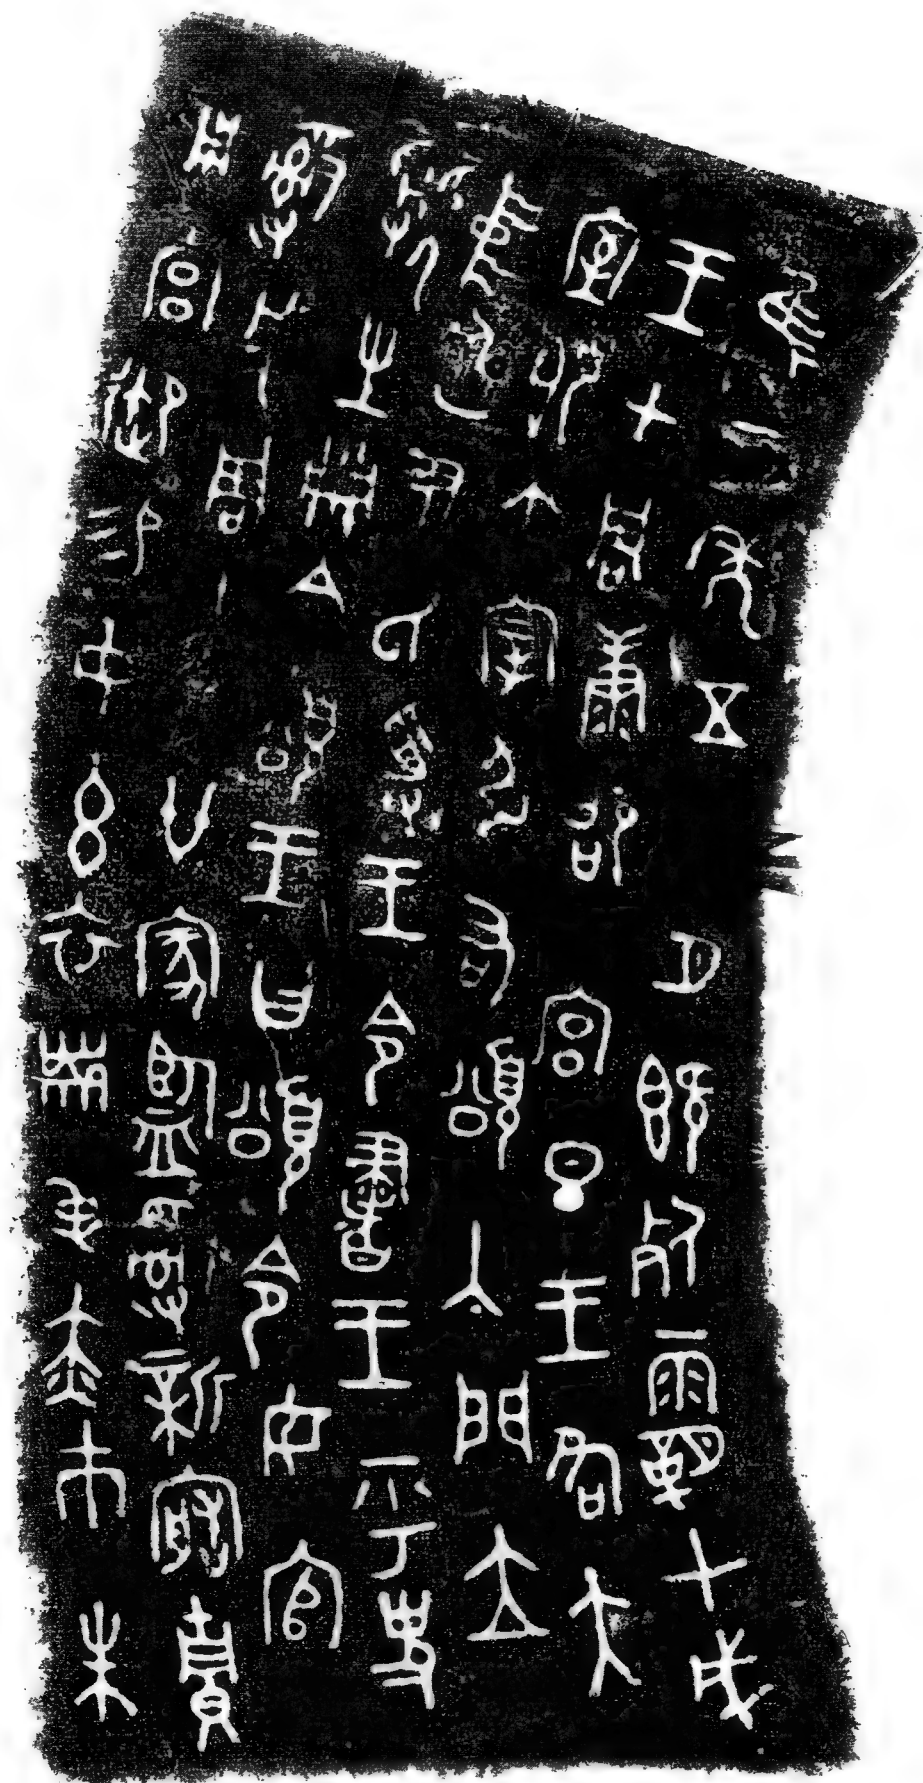 隹三年五月既死霸甲戌
王才周康卲宮旦王各大
室即立宰引右頌入門立
中廷尹氏受王令書王乎史
虢生冊令頌王曰頌令女官
𤔲成周貯廿家監𤔲新寤貯
用宮御易女玄衣黹屯赤巿朱